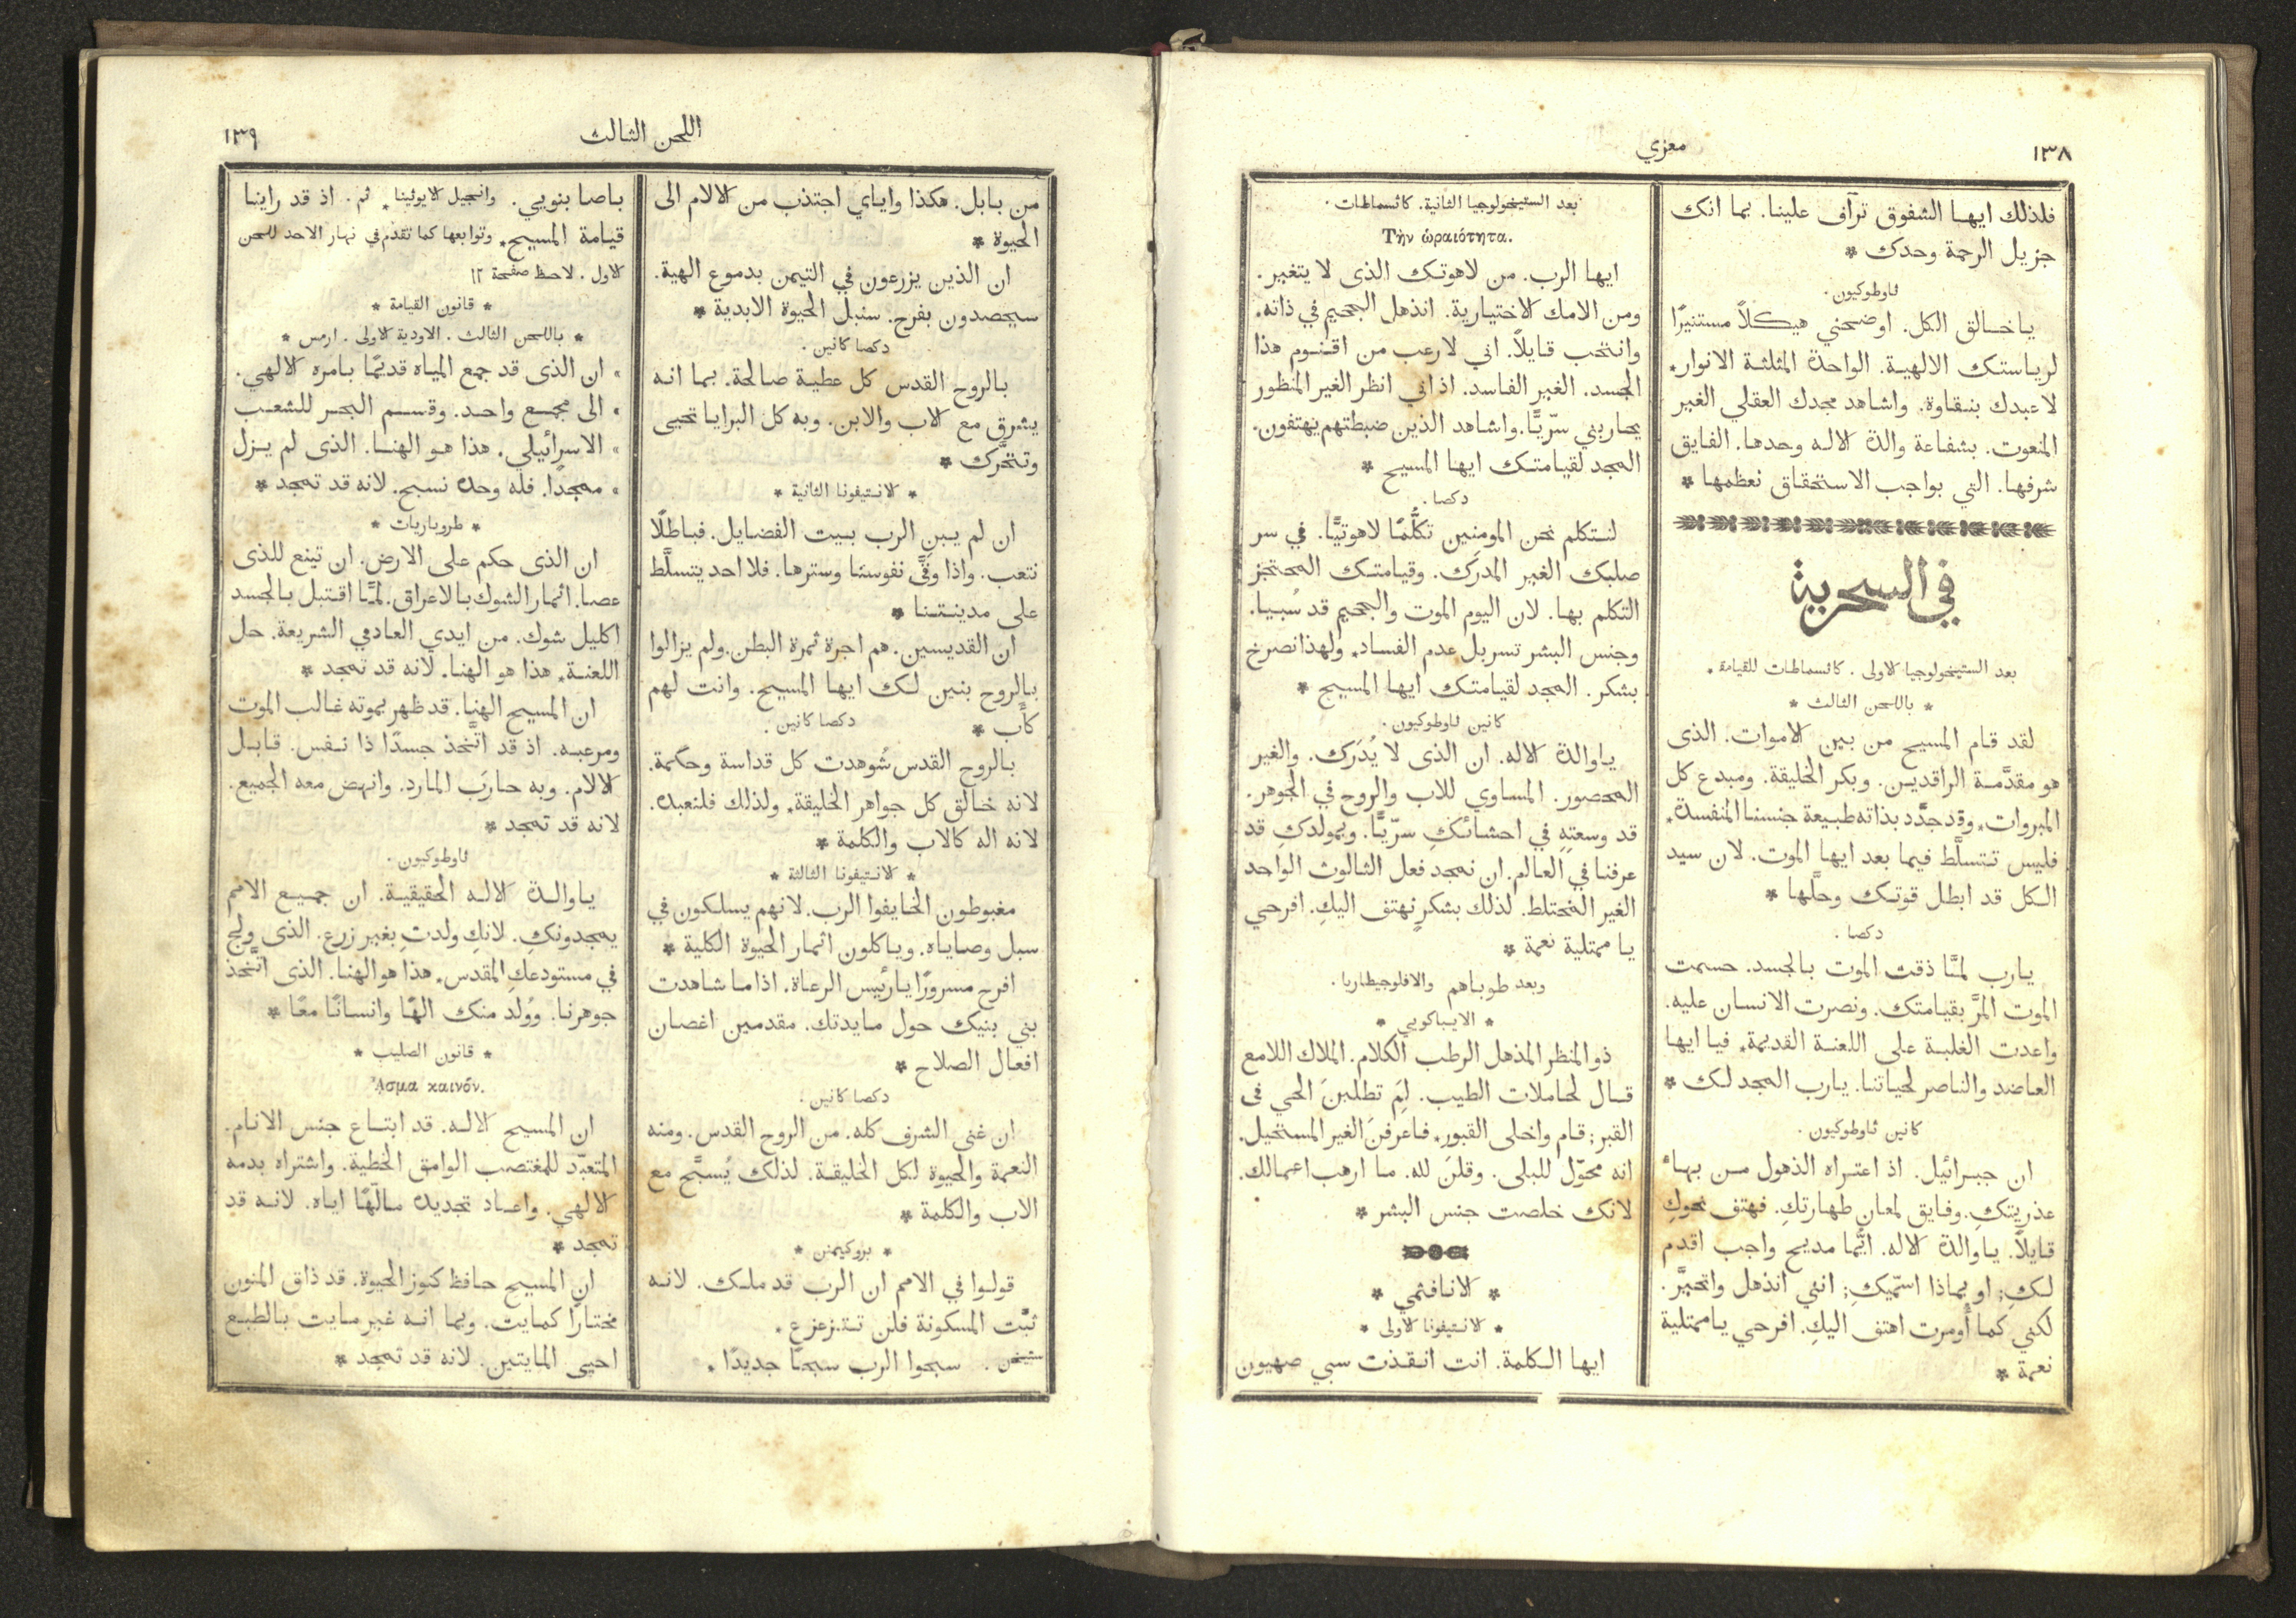 ١٣٨
معزي
فلذلك ايها الشفوق ترآف علينا. بما انك
جزيل الرحمة وحدك *
ثاوطوكيون.
يا خالق الكل. اوضحني هيكلاً مستنيرًا
لرياستك الالهية. الواحدة المثلثة الانوار*
لاعبدك بنقاوة. واشاهد مجدك العقلي الغير
المنعوت. بشفاعة والدة الاله وحدها. الفايق
شرفها. التي بواجب الاستحقاق نعظمها *
في السحرية
بعد الستيخولوجيا الاولى. كاثسماطات للقيامة.
* باللحن الثالث *
لقد قام المسيح من بين الاموات. الذى
هو مقدَّمة الراقدين. وبكر الخليقة. ومبدع كل
المبروات* وقد جدَّد بذاته طبيعة جنسنا المنفسدة*
فليس تتسلَّط فيما بعد ايها الموت. لان سيد
الكل قد ابطل قوتك وحلَّها *
دكصا.
يارب لمَّا ذقت الموت بالجسد. حسمت
الموت المرَّ بقيامتك. ونصرت الانسان عليه.
واعدت الغلبة على اللعنة القديمة* فيا ايها
العاضد والناصر لحياتنا. يارب المجد لك *
كانين ثاوطوكيون.
ان جبرائيل. اذ اعتراه الذهول من بهاء
عذريتكِ. وفايق لمعان طهارتكِ. فهتف نحوكِ
قايلاً. ياوالدة الاله. ايَّما مديح واجب اقدم
لكِ; او بماذا اسمّيكِ; انني انذهل واتحيَّر.
لكني كما أُومرت اهتف اليكِ. افرحي ياممتلية
نعمة *
بعد الستيخولوجيا الثانية. كاثسماطات.
Τὴν ὡραιότητα.
ايها الرب. من لاهوتك الذى لا يتغير.
ومن الامك الاختيارية. انذهل الجحيم في ذاته.
وانتحب قايلاً. اني لارعب من اقنوم هذا
الجسد. الغير الفاسد. اذ اني انظر الغير المنظور
يحاربني سرّيًّا. واشاهد الذين ضبطتهم يهتفون.
المجد لقيامتك ايها المسيح *
دكصا.
لنتكلم نحن المومنين تكلُّمًا لاهوتيًّا. في سر
صلبك الغير المدرَك. وقيامتك المحتجز
التكلم بها. لان اليوم الموت والجحيم قد سُبيا.
وجنس البشر تسربل عدم الفساد* ولهذا نصرخ
بشكر. المجد لقيامتك ايها المسيح *
كانين ثاوطوكيون.
ياوالدة الاله. ان الذى لا يُدرَك. والغير
المحصور. المساوي للاب والروح في الجوهر.
قد وسعتِهِ في احشائكِ سرّيًّا. وبمولدكِ قد
عرفنا في العالم. ان نمجد فعل الثالوث الواحد
الغير المختلط. لذلك بشكرٍ نهتف اليكِ. افرحي
يا ممتلية نعمة *
وبعد طوباهم والافلوجيطاريا.
* الايباكويي *
ذو المنظر المذهل الرطب الكلام. الملاك اللامع
قال لحاملات الطيب. لِمَ تطلبنَ الحي فى
القبر; قام واخلى القبور* فاعرفنَ الغير المستحيل.
انه محوّل للبلى. وقلنَ لله. ما ارهب اعمالك.
لانك خلصت جنس البشر *
* الانافثمي *
* الانتيفونا الاولى *
ايها الكلمة. انت انقذت سبي صهيون
اللحن الثالث
١٣٩
من بابل. هكذا واياي اجتذب من الالام الى
الحيوة *
ان الذين يزرعون في التيمن بدموع الهية.
سيحصدون بفرح. سنبل الحيوة الابدية *
دكصا كانين.
بالروح القدس كل عطية صالحة. بما انه
يشرق مع الاب والابن. وبه كل البرايا تحيى
وتتحَّرك *
* الانتيفونا الثانية *
ان لم يبنِ الرب بيت الفضايل. فباطلًا
نتعب. واذا وقَّى نفوسنا وسترها. فلا احد يتسلَّط
على مدينتنا *
ان القديسين. هم اجرة ثمرة البطن. ولم يزالوا
بالروح بنين لك ايها المسيح. وانت لهم
كأب * دكصا كانين.
بالروح القدس شُوهدت كل قداسة وحكمة.
لانه خالق كل جواهر الخليقة* ولذلك فلنعبده.
لانه اله كالاب والكلمة *
* الانتيفونا الثالثة *
مغبوطون الخايفوا الرب. لانهم يسلكون في
سبل وصاياه. وياكلون اثمار الحيوة الكلية *
افرح مسرورًا يارئيس الرعاة. اذاما شاهدت
بني بنيك حول مايدتك. مقدمين اغصان
افعال الصلاح *
دكصا كانين.
ان غنى الشرف كله. من الروح القدس. ومنه
النعمة والحيوة لكل الخليقة. لذلك يُسبَّح مع
الاب والكلمة *
* بروكيمنن *
قولوا في الامم ان الرب قد ملك. لانه
ثبَّت المسكونة فلن تتزعزع.
ستيخن. سبحوا الرب سبحًا جديدًا.
باصا بنويي. وانجيل الايوثينا* ثم. اذ قد راينا
قيامة المسيح* وتوابعها كما تقدم في نهار الاحد للحن
الاول. لاحظ صفحة ١٢
* قانون القيامة *
* باللحن الثالث. الاودية الاولى. ارمس *
» ان الذى قد جمع المياه قديمًا بامره الالهي.
» الى مجمع واحد. وقسم البحر للشعب
» الاسرائيلي. هذا هو الهنا. الذى لم يزل
» ممجدًا. فله وحده نسبح. لانه قد تمجد *
* طروباريات *
ان الذى حكم على الارض. ان تينع للذى
عصا. اثمار الشوك بالاعراق. لمَّا اقتبل بالجسد
اكليل شوك. من ايدي العادمي الشريعة. حل
اللعنة* هذا هو الهنا. لانه قد تمجد *
ان المسيح الهنا. قد ظهر بموته غالب الموت
ومرعبه. اذ قد اتَّخذ جسدًا ذا نفس. قابل
الالام. وبه حارَب المارد. وانهض معه الجميع.
لانه قد تمجد *
ثاوطوكيون.
ياوالدة الاله الحقيقية. ان جميع الامم
يمجدونكِ. لانكِ ولدتِ بغير زرع. الذى ولج
في مستودعكِ المقدس* هذا هو الهنا. الذى اتَّخذ
جوهرنا. ووُلد منك الهًا وانسانًا معًا *
* قانون الصليب *
ᾌσμα καινόν.
ان المسيح الاله. قد ابتاع جنس الانام.
المتعبّد للمغتصب الوامق الخطية. واشتراه بدمه
الالهي. واعاد تجديده مالّهًا اياه. لانه قد
تمجد *
ان المسيح حافظ كنوز الحيوة. قد ذاق المنون
مختارًا كمايت. وبما انه غير مايت بالطبع
احيى المايتين. لانه قد تمجد *